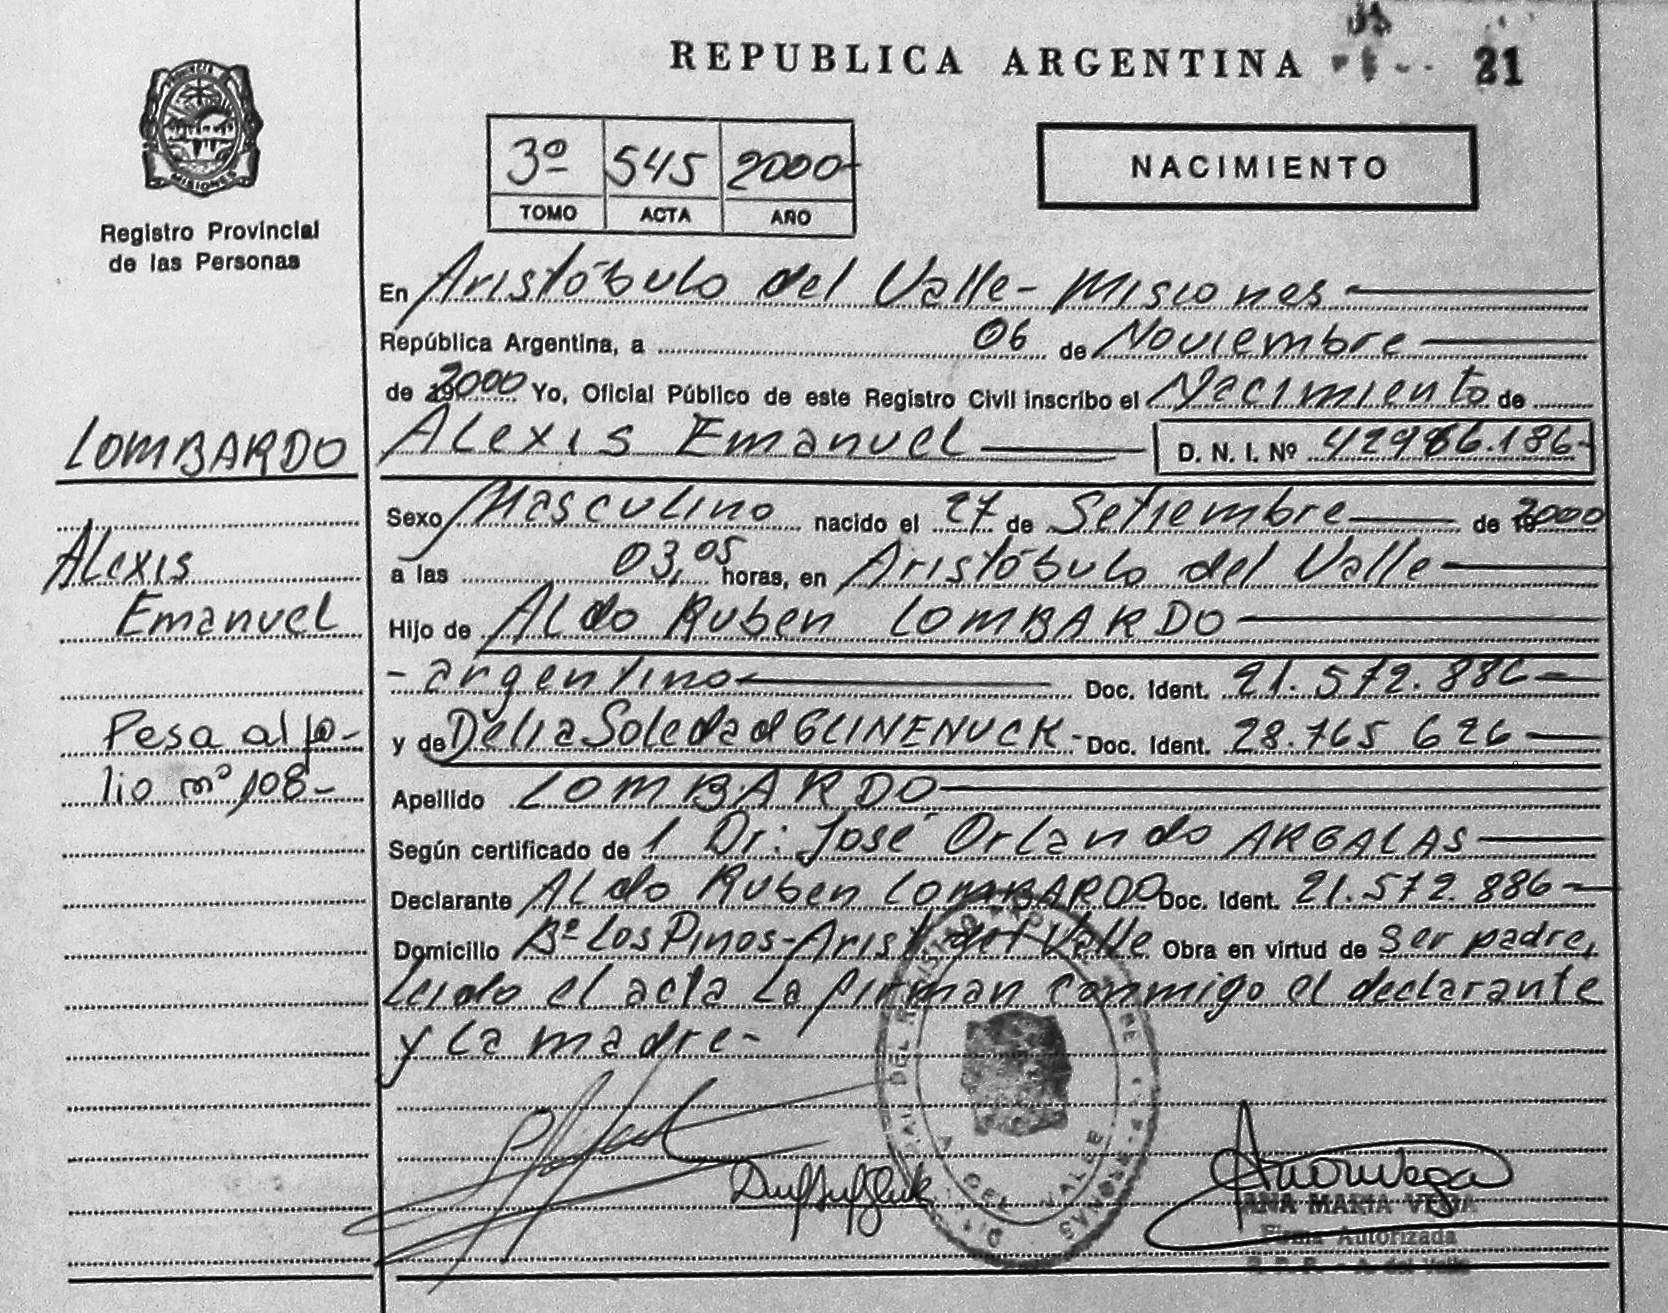 REPUBLICA ARGENTINA
21
3º 545 2000-
TOMO ACTA AÑO
NACIMIENTO
MISIONES
Registro Provincial
de las Personas
En Aristóbulo del Valle - Misiones
República Argentina, a 06 de Noviembre
de 2000 Yo, Oficial Público de este Registro Civil inscribo el Nacimiento de
LOMBARDO
Alexis Emanuel D. N. I. Nº 42986.186-
Sexo Masculino nacido el 27 de Setiembre de 2000
Alexis
a las 03,05 horas, en Aristóbulo del Valle
Emanuel
Hijo de Aldo Ruben LOMBARDO
- argentino Doc. Ident. 21.572.886
Pesa al fo-
lio nº 108-
y de Delia Soledad GLINENUCK - Doc. Ident. 28.765 626
Apellido LOMBARDO
Según certificado de 1 Dr: José Orlando ARGALAS
Declarante Aldo Ruben LOMBARDO Doc. Ident. 21.572.886
Domicilio Bº Los Pinos - Arist del Valle Obra en virtud de ser padre,
Leido el acta la firman conmigo el declarante
y la madre-
ANA MARIA VEGA
Firma Autorizada